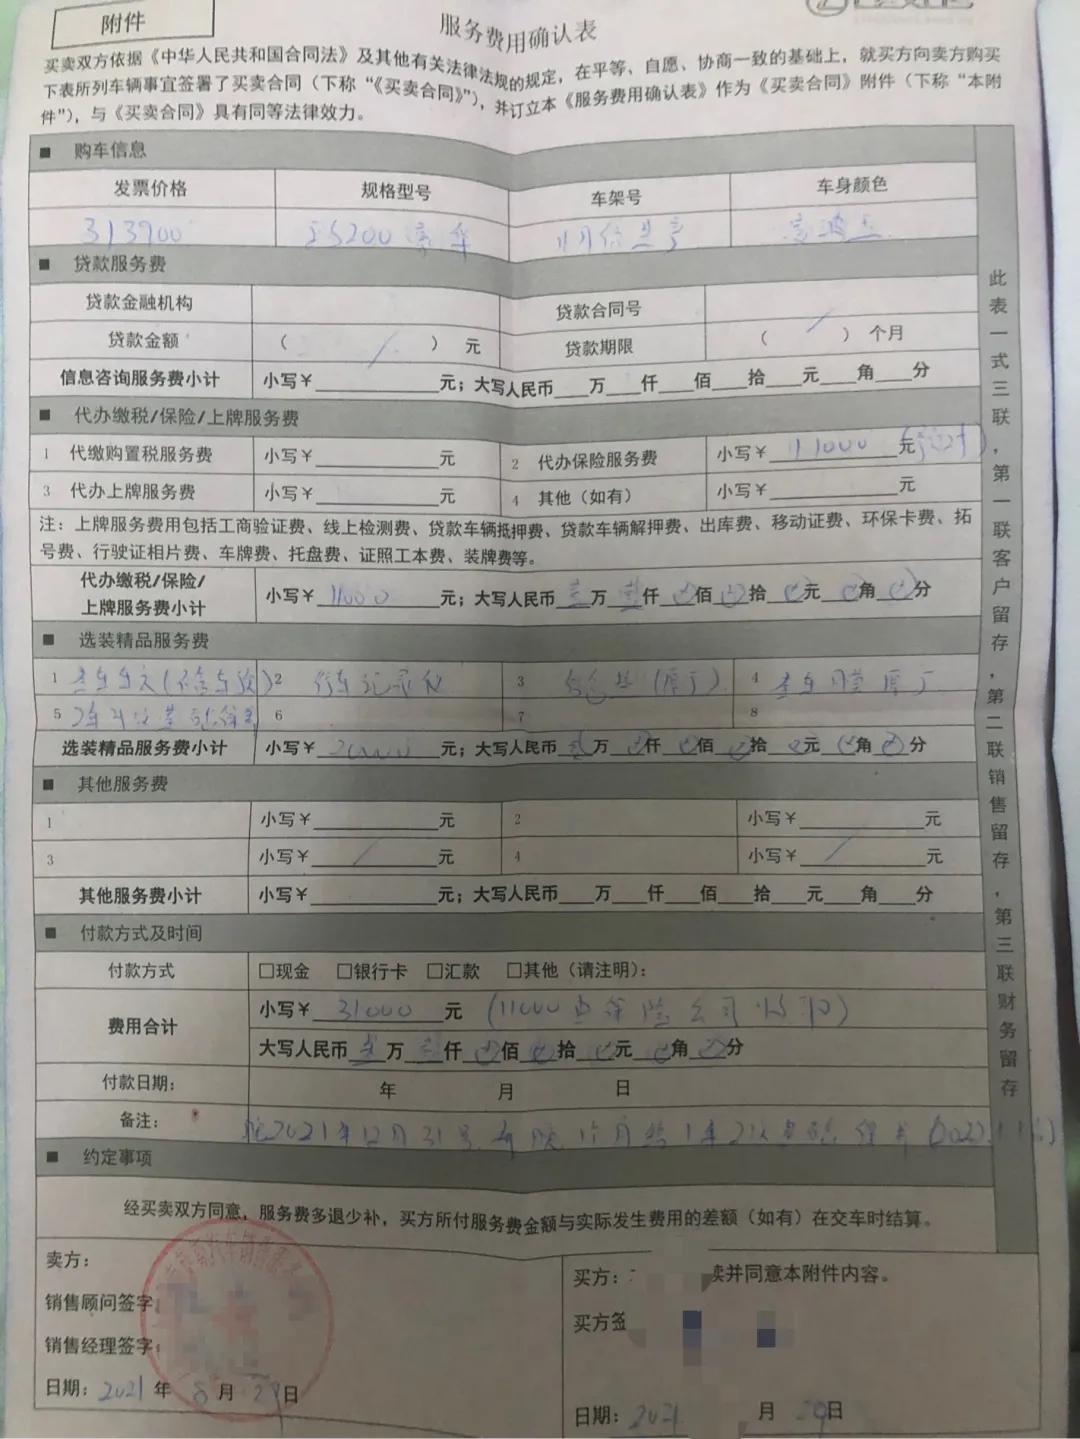 附件
服务费用确认表
买卖双方依据《中华人民共和国合同法》及其他有关法律法规的规定，在平等、自愿、协商一致的基础上，就买方向卖方购买
下表所列车辆事宜签署了买卖合同（下称“《买卖合同》”），并订立本《服务费用确认表》作为《买卖合同》附件（下称“本附
件”），与《买卖合同》具有同等法律效力。
■ 购车信息
发票价格 规格型号 车架号 车身颜色
313900 ES200 11月
■ 贷款服务费
贷款金融机构 贷款合同号
贷款金额 （ / ）元 贷款期限 （ / ）个月
信息咨询服务费小计 小写￥____元；大写人民币__万__仟__佰__拾__元__角__分
■ 代办缴税/保险/上牌服务费
1 代缴购置税服务费 小写￥____元 2 代办保险服务费 小写￥ 11000 元（预计）
3 代办上牌服务费 小写￥____元 4 其他（如有） 小写￥____元
注：上牌服务费用包括工商验证费、线上检测费、贷款车辆抵押费、贷款车辆解押费、出库费、移动证费、环保卡费、拓
号费、行驶证相片费、车牌费、托盘费、证照工本费、装牌费等。
代办缴税/保险/
上牌服务费小计 小写￥ 11000 元；大写人民币 壹 万 壹 仟 佰 拾 元 角 分
■ 选装精品服务费
1 2 行车记录仪 3 （原厂） 4 原厂
5 6 7 8
选装精品服务费小计 小写￥ 20000 元；大写人民币 贰 万 仟 佰 拾 元 角 分
■ 其他服务费
1 小写￥____元 2 小写￥____元
3 小写￥ / 元 4 小写￥ / 元
其他服务费小计 小写￥____元；大写人民币__万__仟__佰__拾__元__角__分
■ 付款方式及时间
付款方式 □现金 □银行卡 □汇款 □其他（请注明）：
费用合计 小写￥ 31000 元 （11000 保险公司收取）
大写人民币 叁 万 壹 仟 佰 拾 元 角 分
付款日期： 年 月 日
备注： 2021年12月31号
■ 约定事项
经买卖双方同意，服务费多退少补，买方所付服务费金额与实际发生费用的差额（如有）在交车时结算。
卖方：
销售顾问签字
销售经理签字：
日期：2021年8月29日
买方： 并同意本附件内容。
买方签
日期：2021 月 29日
此表一式三联，第一联客户留存，第二联销售留存，第三联财务留存